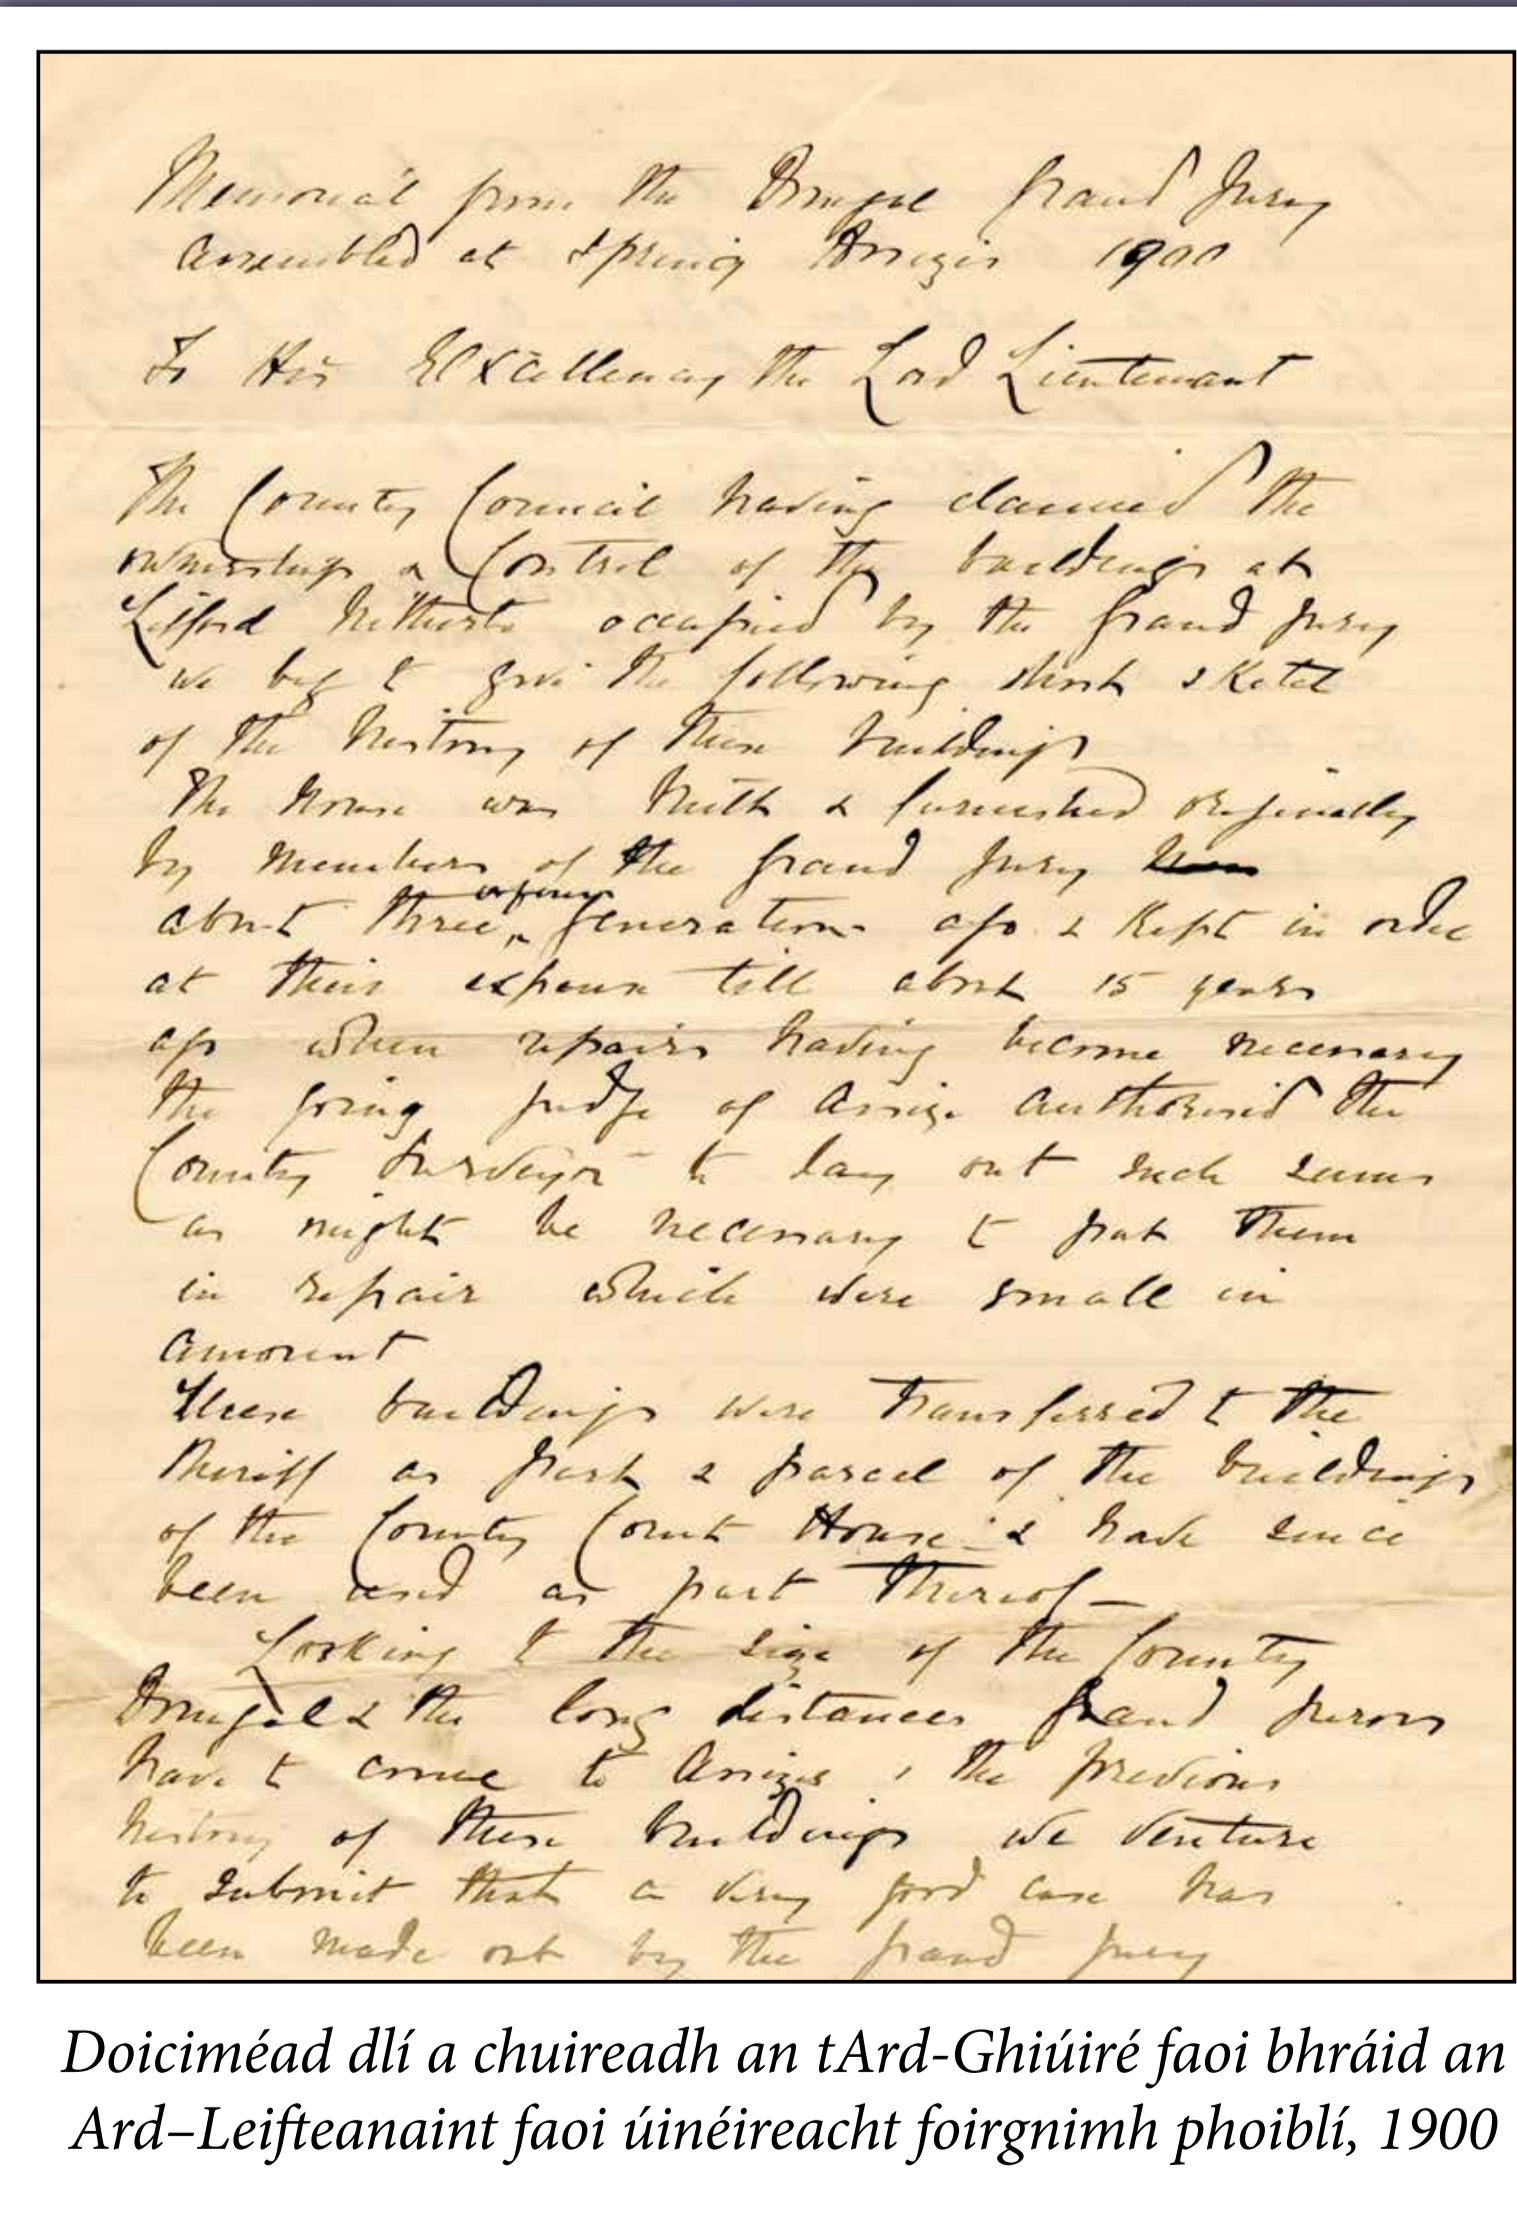 Memorial from the Donegal Grand Jury
assembled at Spring Assizes 1900
To His Excellency the Lord Lieutenant
The County Council having claimed the
ownership & Control of the buildings at
Lifford hitherto occupied by the Grand Jury
we beg to give the following short sketch
of the history of these buildings
The House was built & furnished originally
by members of the Grand Jury
about three generations ago & Kept in order
at their expense till about 15 years
ago when repairs having become necessary
the going Judge of Assize authorised the
County Surveyor to lay out such sums
as might be necessary to put them
in repair which were small in
amount
These buildings were transferred to the
Sheriff as part & parcel of the buildings
of the County Court House & have since
been used as part thereof —
Looking to the size of the County
Donegal & the long distances Grand Jurors
have to come to Assizes, the previous
history of these buildings we venture
to submit that a very good case has
been made out by the Grand Jury
Doiciméad dlí a chuireadh an tArd-Ghiúiré faoi bhráid an
Ard–Leifteanaint faoi úinéireacht foirgnimh phoiblí, 1900